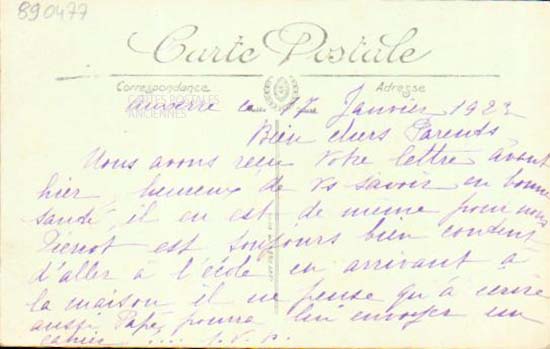 890477
Carte Postale
Correspondance
Adresse
CARTES POSTALES
ANCIENNES
Auxerre le 17 Janvier 1923
Bien chers Parents
Nous avons reçu votre lettre avant
hier, heureux de vs savoir en bonne
santé, il en est de meme pour nous
Pierrot est toujours bien content
d'aller à l'école en arrivant à
la maison il ne pense qu'à écrire
aussi Papé pourra lui envoyer un
cahier .... S.V.P.